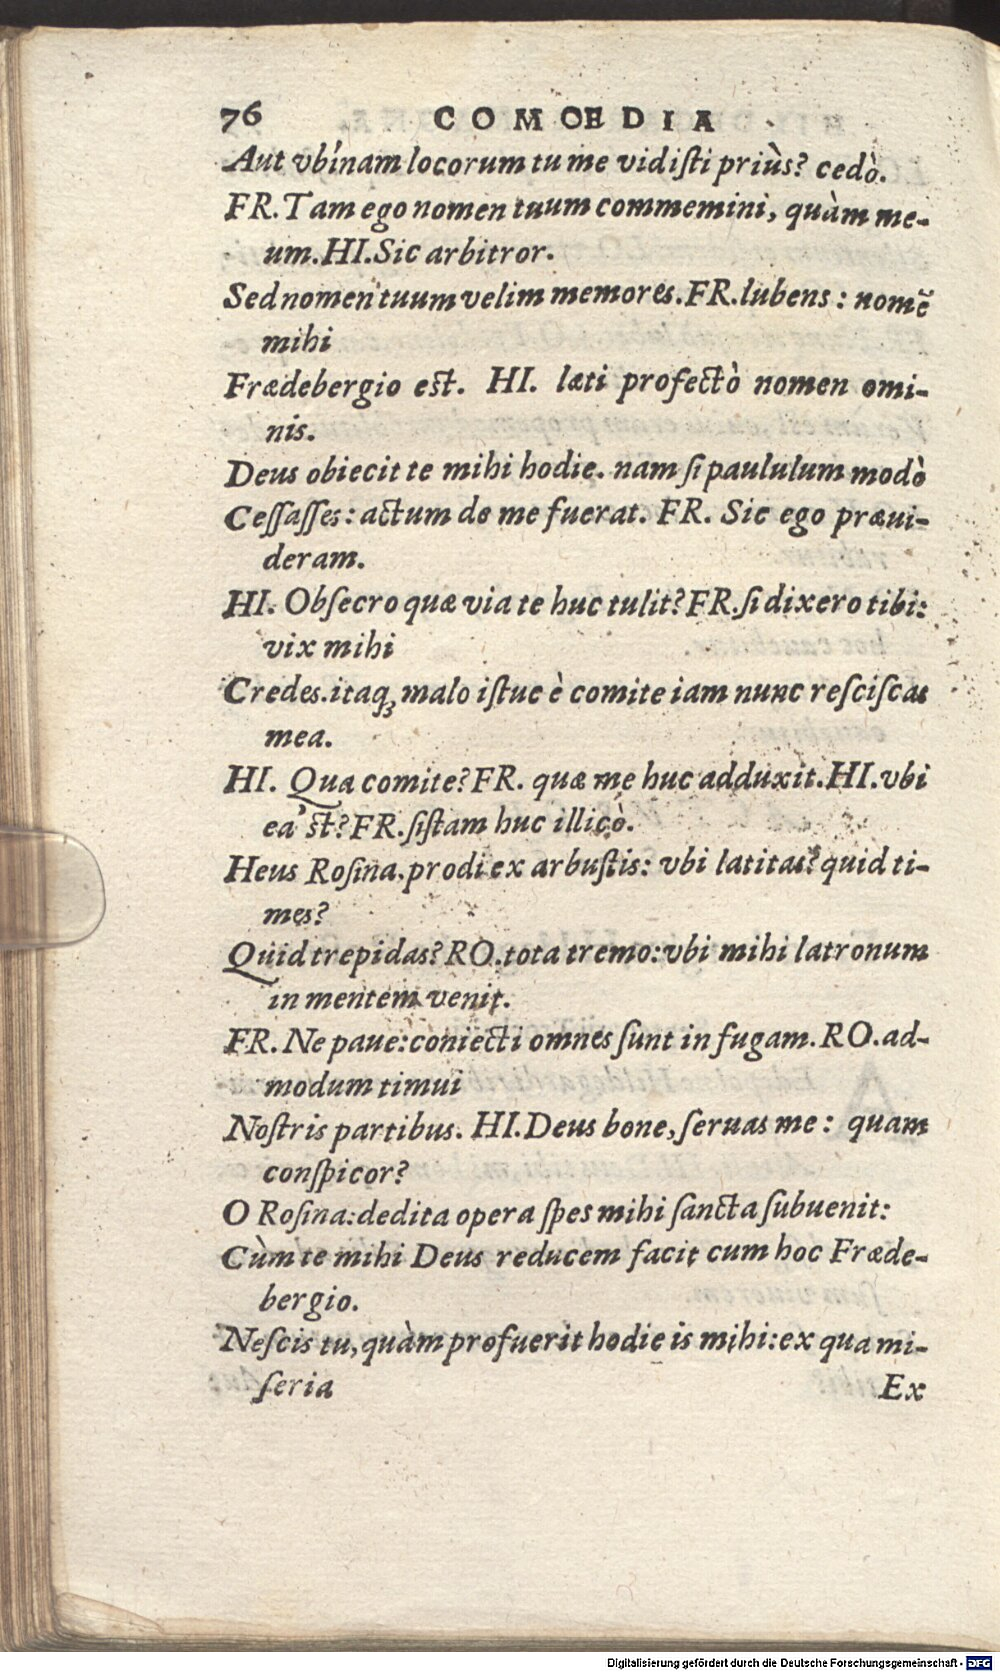 76 COMOEDIA
Aut vbínam locorum tu me vidiſti priùs? cedò.
FR. Tam ego nomen tuum commemini, quàm me-
um. HI. Sic arbitror.
Sed nomen tuum velim memores. FR. lubens: nomẽ
mihi
Frædebergio est. HI. læti profectò nomen omi-
nis.
Deus obiecit te mihi hodie. nam ſi paululum modò
Ceſſaſſes: actum de me fuerat. FR. Sic ego præui-
deram.
HI. Obſecro quæ via te huc tulit? FR. ſi dixero tibi:
vix mihi
Credes. itaq; malo iſtuc è comite iam nunc reſciſcas
mea.
HI. Qua comite? FR. quæ me huc adduxit. HI. vbi
ea'st? FR. ſiſtam huc illicò.
Heus Roſina. prodi ex arbuſtis: vbi latitas? quid ti-
mes?
Quid trepidas? RO. tota tremo: vbi mihi latronum
in mentem venit.
FR. Ne paue: coniecti omnes ſunt in fugam. RO. ad-
modum timui
Nostris partibus. HI. Deus bone, ſeruas me: quam
conſpicor?
O Roſina: dedita opera ſpes mihi ſancta ſubuenit:
Cùm te mihi Deus reducem facit cum hoc Fræde-
bergio.
Neſcis tu, quàm profuerit hodie is mihi: ex qua mi-
ſeria Ex
Digitalisierung gefördert durch die Deutsche Forschungsgemeinschaft - DFG